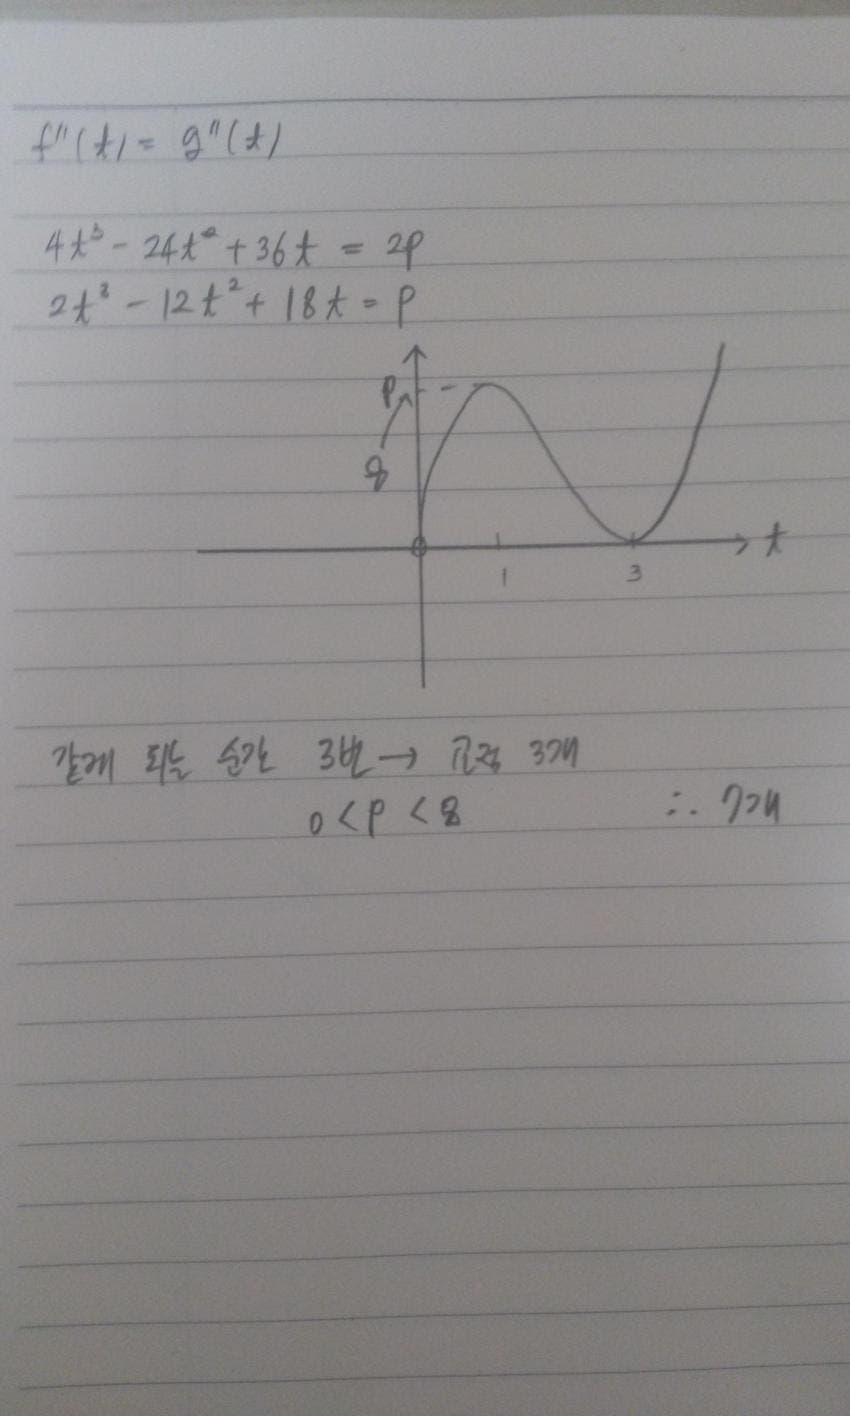 f''(t) = g''(t)
4t³ - 24t² + 36t = 2p
2t³ - 12t² + 18t = p
p
8
t
1 3
같게 되는 순간 3번 → 교점 3개
0 < p < 8 ∴ 7개